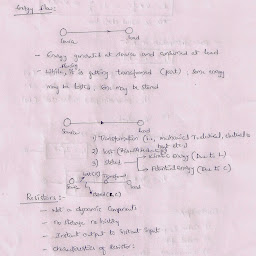 Energy flow:-
Source
Load
- Energy generated at source and consumed at load
- While, it is getting transformed (part), some energy
may be lost, some may be stored
Source
Load
1) Transformation (i.e., mechanical to
2) lost
3) stored
Kinetic Energy (Due to L)
Potential Energy (Due to C)
Source
Load
stored (L, C)
Resistors:-
- Not a dynamic component
- no storage
- Instant output to instant input
- Characteristics of resistor: